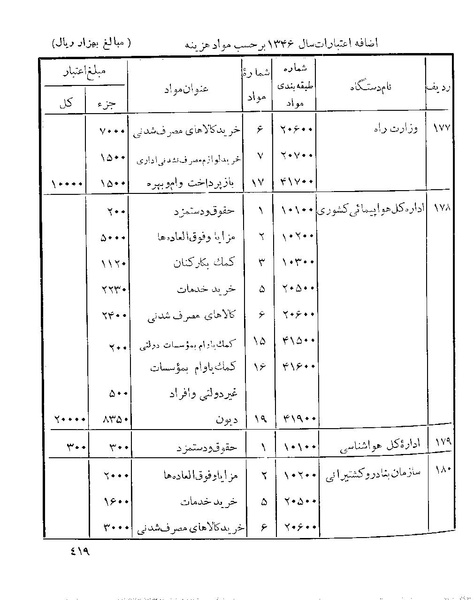 اضافه اعتبارات سال ۱۳۴۶ برحسب مواد هزینه (مبالغ بهزار ریال)
ردیف نام دستگاه شماره طبقه‌بندی مواد شمارهٔ مواد عنوان مواد مبلغ اعتبار
جزء کل
۱۷۷ وزارت راه ۲۰۶۰۰ ۶ خرید کالاهای مصرف شدنی ۷۰۰۰
۲۰۷۰۰ ۷ خرید لوازم مصرف نشدنی اداری ۱۵۰۰
۴۱۷۰۰ ۱۷ باز پرداخت وام و بهره ۱۵۰۰ ۱۰۰۰۰
۱۷۸ اداره کل هواپیمائی کشوری ۱۰۱۰۰ ۱ حقوق و دستمزد ۲۰۰
۱۰۲۰۰ ۲ مزایا و فوق العاده‌ها ۵۰۰۰
۱۰۳۰۰ ۳ کمک بکارکنان ۱۱۲۰
۲۰۵۰۰ ۵ خرید خدمات ۲۲۳۰
۲۰۶۰۰ ۶ کالاهای مصرف شدنی ۲۴۰۰
۴۱۵۰۰ ۱۵ کمک یا وام بمؤسسات دولتی ۲۰۰
۴۱۶۰۰ ۱۶ کمک یا وام بمؤسسات
غیر دولتی و افراد ۵۰۰
۴۱۹۰۰ ۱۹ دیون ۸۳۵۰ ۲۰۰۰۰
۱۷۹ ادارهٔ کل هواشناسی ۱۰۱۰۰ ۱ حقوق و دستمزد ۳۰۰ ۳۰۰
۱۸۰ سازمان بنادر و کشتیرانی ۱۰۲۰۰ ۲ مزایا و فوق العاده‌ها ۲۰۰۰
۲۰۵۰۰ ۵ خرید خدمات ۱۶۰۰
۲۰۶۰۰ ۶ خرید کالاهای مصرف شدنی ۳۰۰۰
۴۱۹